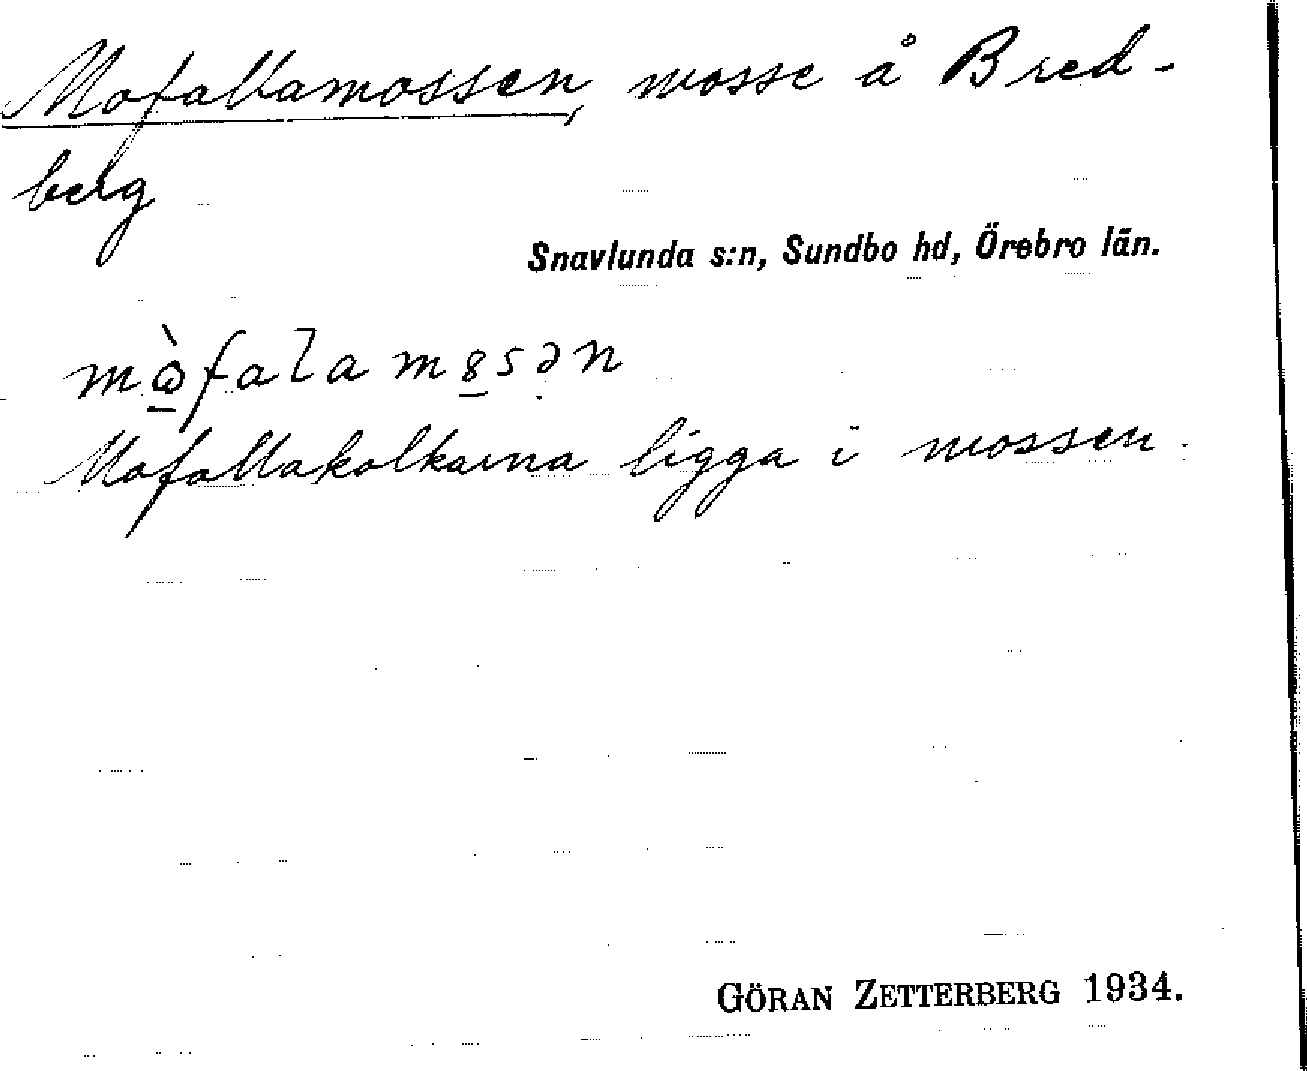 Mofallamossen, mosse å Bred-
berg
Snavlunda s:n, Sundbo hd, Örebro län.
mὼ̲falamȣ̲sən
Mofallakolkarna ligga i mossen.
GÖRAN ZETTERBERG 1934.